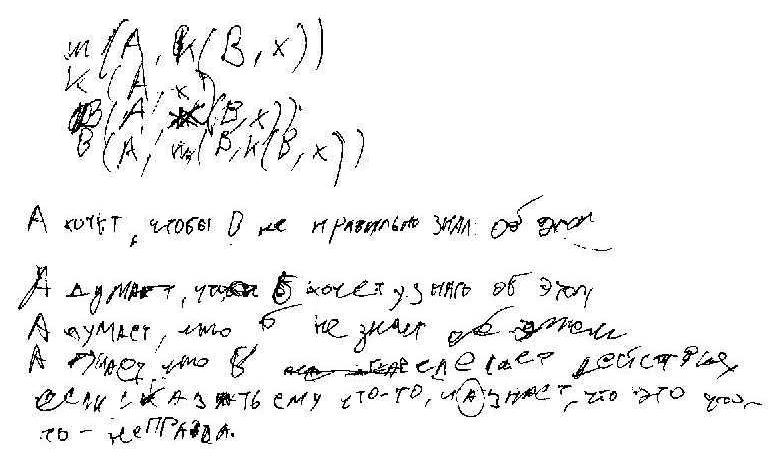 m(A, K(B, x))
K(A, x)
B(A, K(B, x))
B(A, m(B, K(B, x))
А хочет, чтобы В не правильно знал об этом
А думает, что Б хочет узнать об этом
А думает, что Б не знает об этом
А думает что В сделает действия
если сказать ему что-то, и А знает, что это что-
то - неправда.